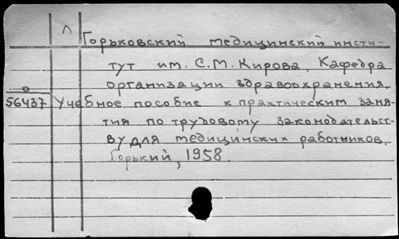 Л
Горьковский медицинский инсти-
тут им. С.М. Кирова. Кафедра
организации здравоохранения.
56437 Учебное пособие к практическим заня-
тия по трудовому законодательст-
ву для медицинских работников.
Горький, 1958.